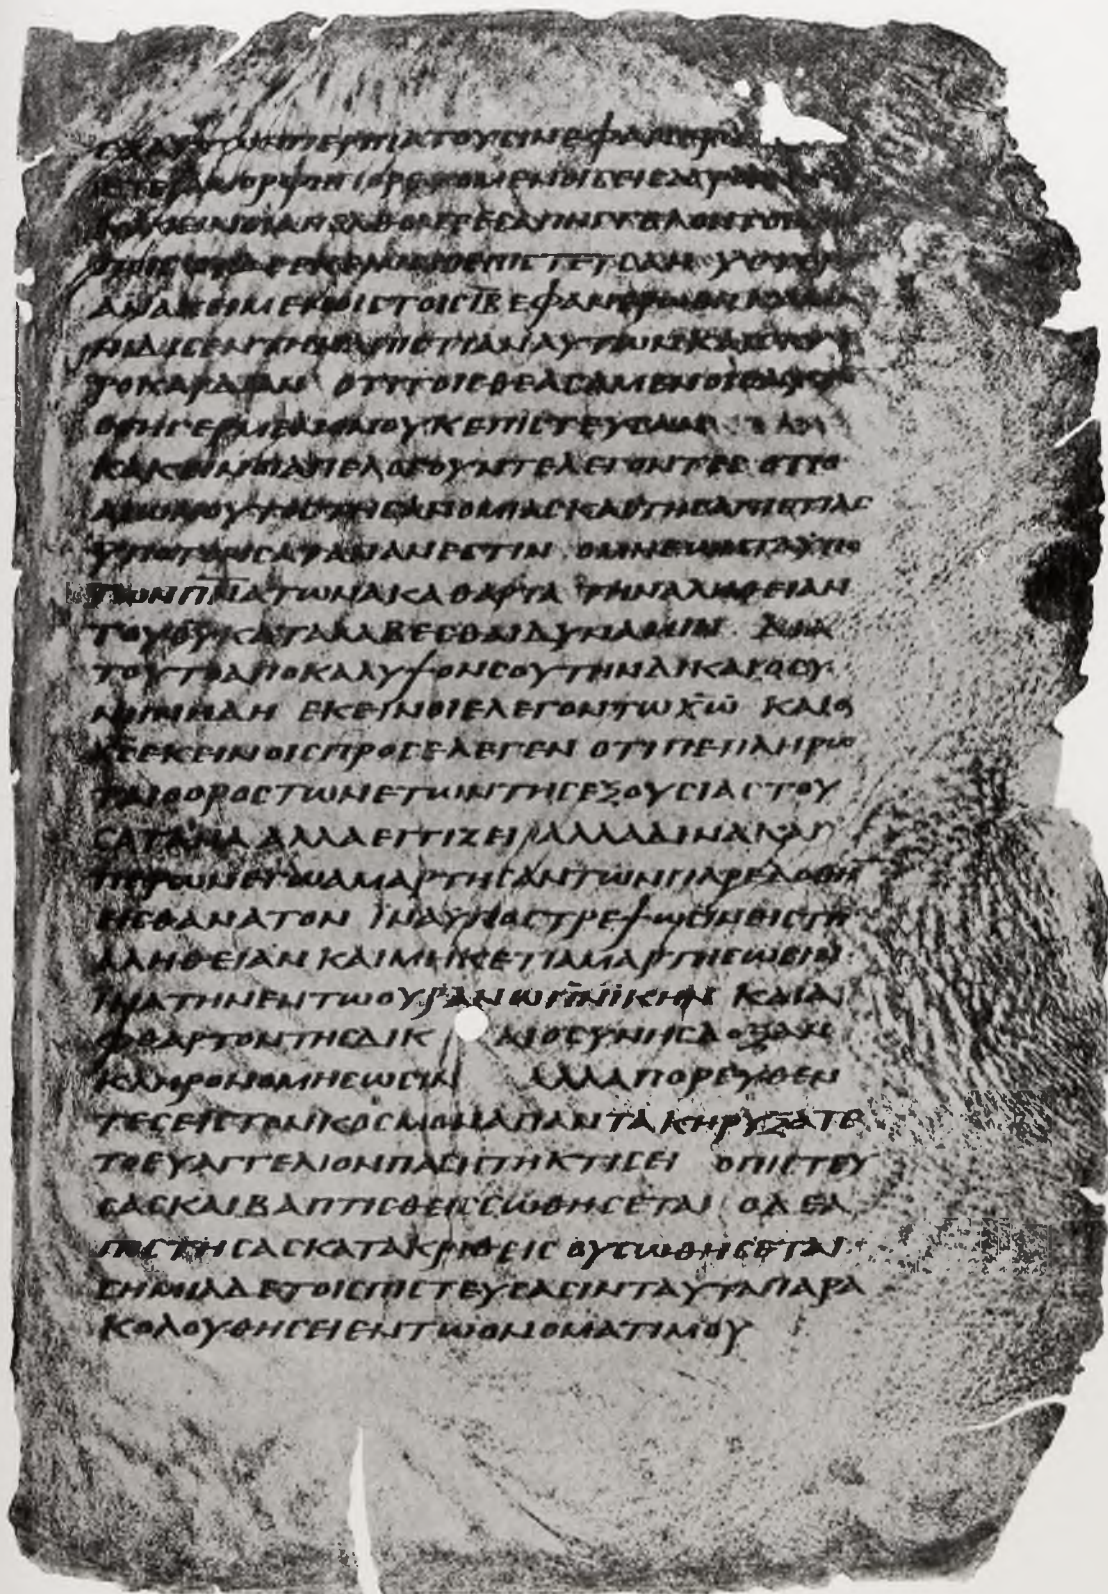 ΕΞΑΥΤΩΝΠΕΡΙΠΑΤΟΥCΙΝΕΦΑΝΕΡ
ΕΤΕΡΑΜΟΡΦΗΠΟΡΕΥΟΜΕΝΟΙCΕΙCΑΓΡΟΝ
ΚΑΚΕΙΝΟΙΑΠΕΛΘΟΝΤΕCΑΠΗΓΓΕΙΛΟΝΤΟΙC
ΛΟΙΠΟΙCΟΥΔΕΕΚΕΙΝΟΙCΕΠΙCΤΕΥCΑΝ ΥCΤΕΡΟ
ΑΝΑΚΕΙΜΕΝΟΙCΤΟΙCΙΑ̅ΕΦΑΝΕΡΩΘΗ ΚΑΙΩ
ΝΙΔΙCΕΝΤΗΝΑΠΙCΤΙΑΝΑΥΤΩΝΚΑΙCΚΛΗ
ΡΟΚΑΡΔΙΑΝ ΟΤΙΤΟΙCΘΕΑCΑΜΕΝΟΙCΑΥΤΟ
ΕΓΗΓΕΡΜΕΝΟΝΟΥΚΕΠΙCΤΕΥCΑΝ
ΚΑΚΕΙΝΟΙΑΠΕΛΟΓΟΥΝΤΕΛΕΓΟΝΤΕC ΟΤΙΟ
ΑΙΩΝΟΥΤΟCΤΗCΑΝΟΜΙΑCΚΑΙΤΗCΑΠΙCΤΙΑC
ΥΠΟΤΟΝCΑΤΑΝΑΝΕCΤΙΝ ΟΜΗΕΩΝΤΑΥΠΟ
ΤΩΝΠ̅Ν̅Α̅ΤΩΝΑΚΑΘΑΡΤΑ ΤΗΝΑΛΗΘΕΙΑΝ
ΤΟΥΘ̅Υ̅ΚΑΤΑΛΑΒΕCΘΑΙΔΥΝΑΜΙΝ ΔΙΑ
ΤΟΥΤΟΑΠΟΚΑΛΥΨΟΝCΟΥΤΗΝΔΙΚΑΙΟCΥ
ΝΗΝΗΔΗ ΕΚΕΙΝΟΙΕΛΕΓΟΝΤΩΧ̅Ω̅ ΚΑΙΟ
Χ̅C̅ΕΚΕΙΝΟΙCΠΡΟCΕΛΕΓΕΝ ΟΤΙΠΕΠΛΗΡΩ
ΤΑΙΟΟΡΟCΤΩΝΕΤΩΝΤΗCΕΞΟΥCΙΑCΤΟΥ
CΑΤΑΝΑ ΑΛΛΑΕΓΓΙΖΕΙ ΑΛΛΑΔΙΝΑΚΑΙ
ΥΠΕΡΩΝΕΓΩΑΜΑΡΤΗCΑΝΤΩΝΠΑΡΕΔΟΘΗ
ΕΙCΘΑΝΑΤΟΝ ΙΝΑΥΠΟCΤΡΕΨΩCΙΝΕΙCΤΗ
ΑΛΗΘΕΙΑΝ ΚΑΙΜΗΚΕΤΙΑΜΑΡΤΗCΩCΙΝ
ΙΝΑΤΗΝΕΝΤΩΟΥΡΑΝΩΠ̅Ν̅ΙΚΗΝ ΚΑΙΑ
ΦΘΑΡΤΟΝΤΗCΔΙΚ ΑΙΟCΥΝΗCΔΟΞΑΝ
ΚΛΗΡΟΝΟΜΗCΩCΙΝ ΑΛΛΑΠΟΡΕΥΘΕΝ
ΤΕCΕΙCΤΟΝΚΟCΜΟΝΑΠΑΝΤΑΚΗΡΥΞΑΤΕ
ΤΟΕΥΑΓΓΕΛΙΟΝΠΑCΗΤΗΚΤΙCΕΙ ΟΠΙCΤΕΥ
CΑCΚΑΙΒΑΠΤΙCΘΕΙCCΩΘΗCΕΤΑΙ ΟΔΕΑ
ΠΙCΤΗCΑCΚΑΤΑΚΡΙΘΕΙC ΟΥCΩΘΗCΕΤΑΙ
CΗΜΙΑΔΕΤΟΙCΠΙCΤΕΥCΑCΙΝΤΑΥΤΑΠΑΡΑ
ΚΟΛΟΥΘΗCΕΙΕΝΤΩΟΝΟΜΑΤΙΜΟΥ